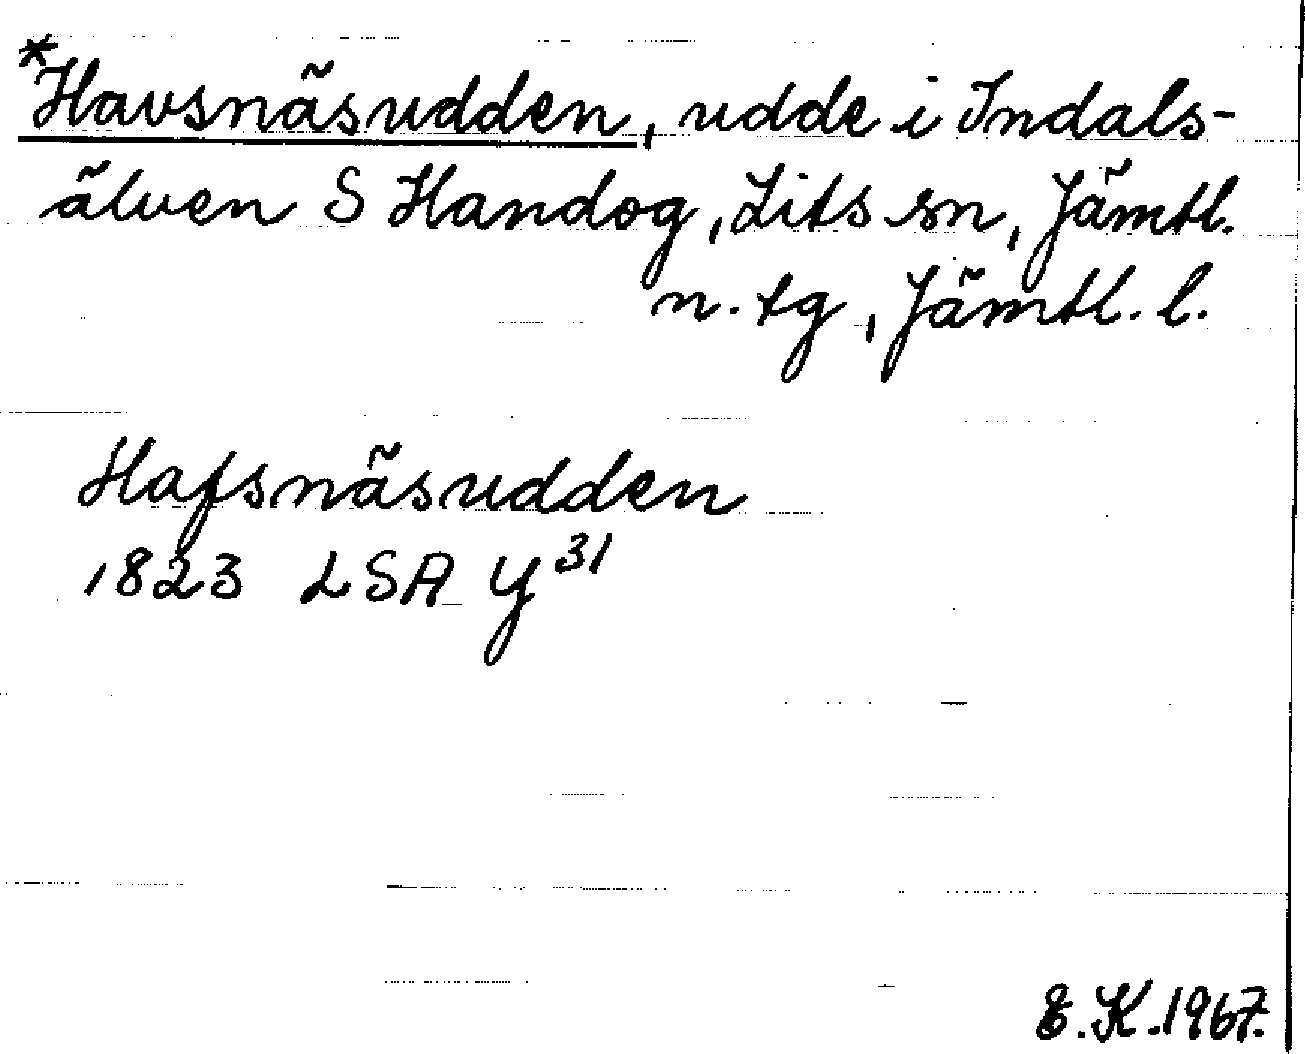 *Havsnäsudden, udde i Indals-
älven S Handog, Lits sn, Jämtl.
n. tg, Jämtl. l.
Hafsnäsudden
1823 LSA Y³¹
E.K.1967.